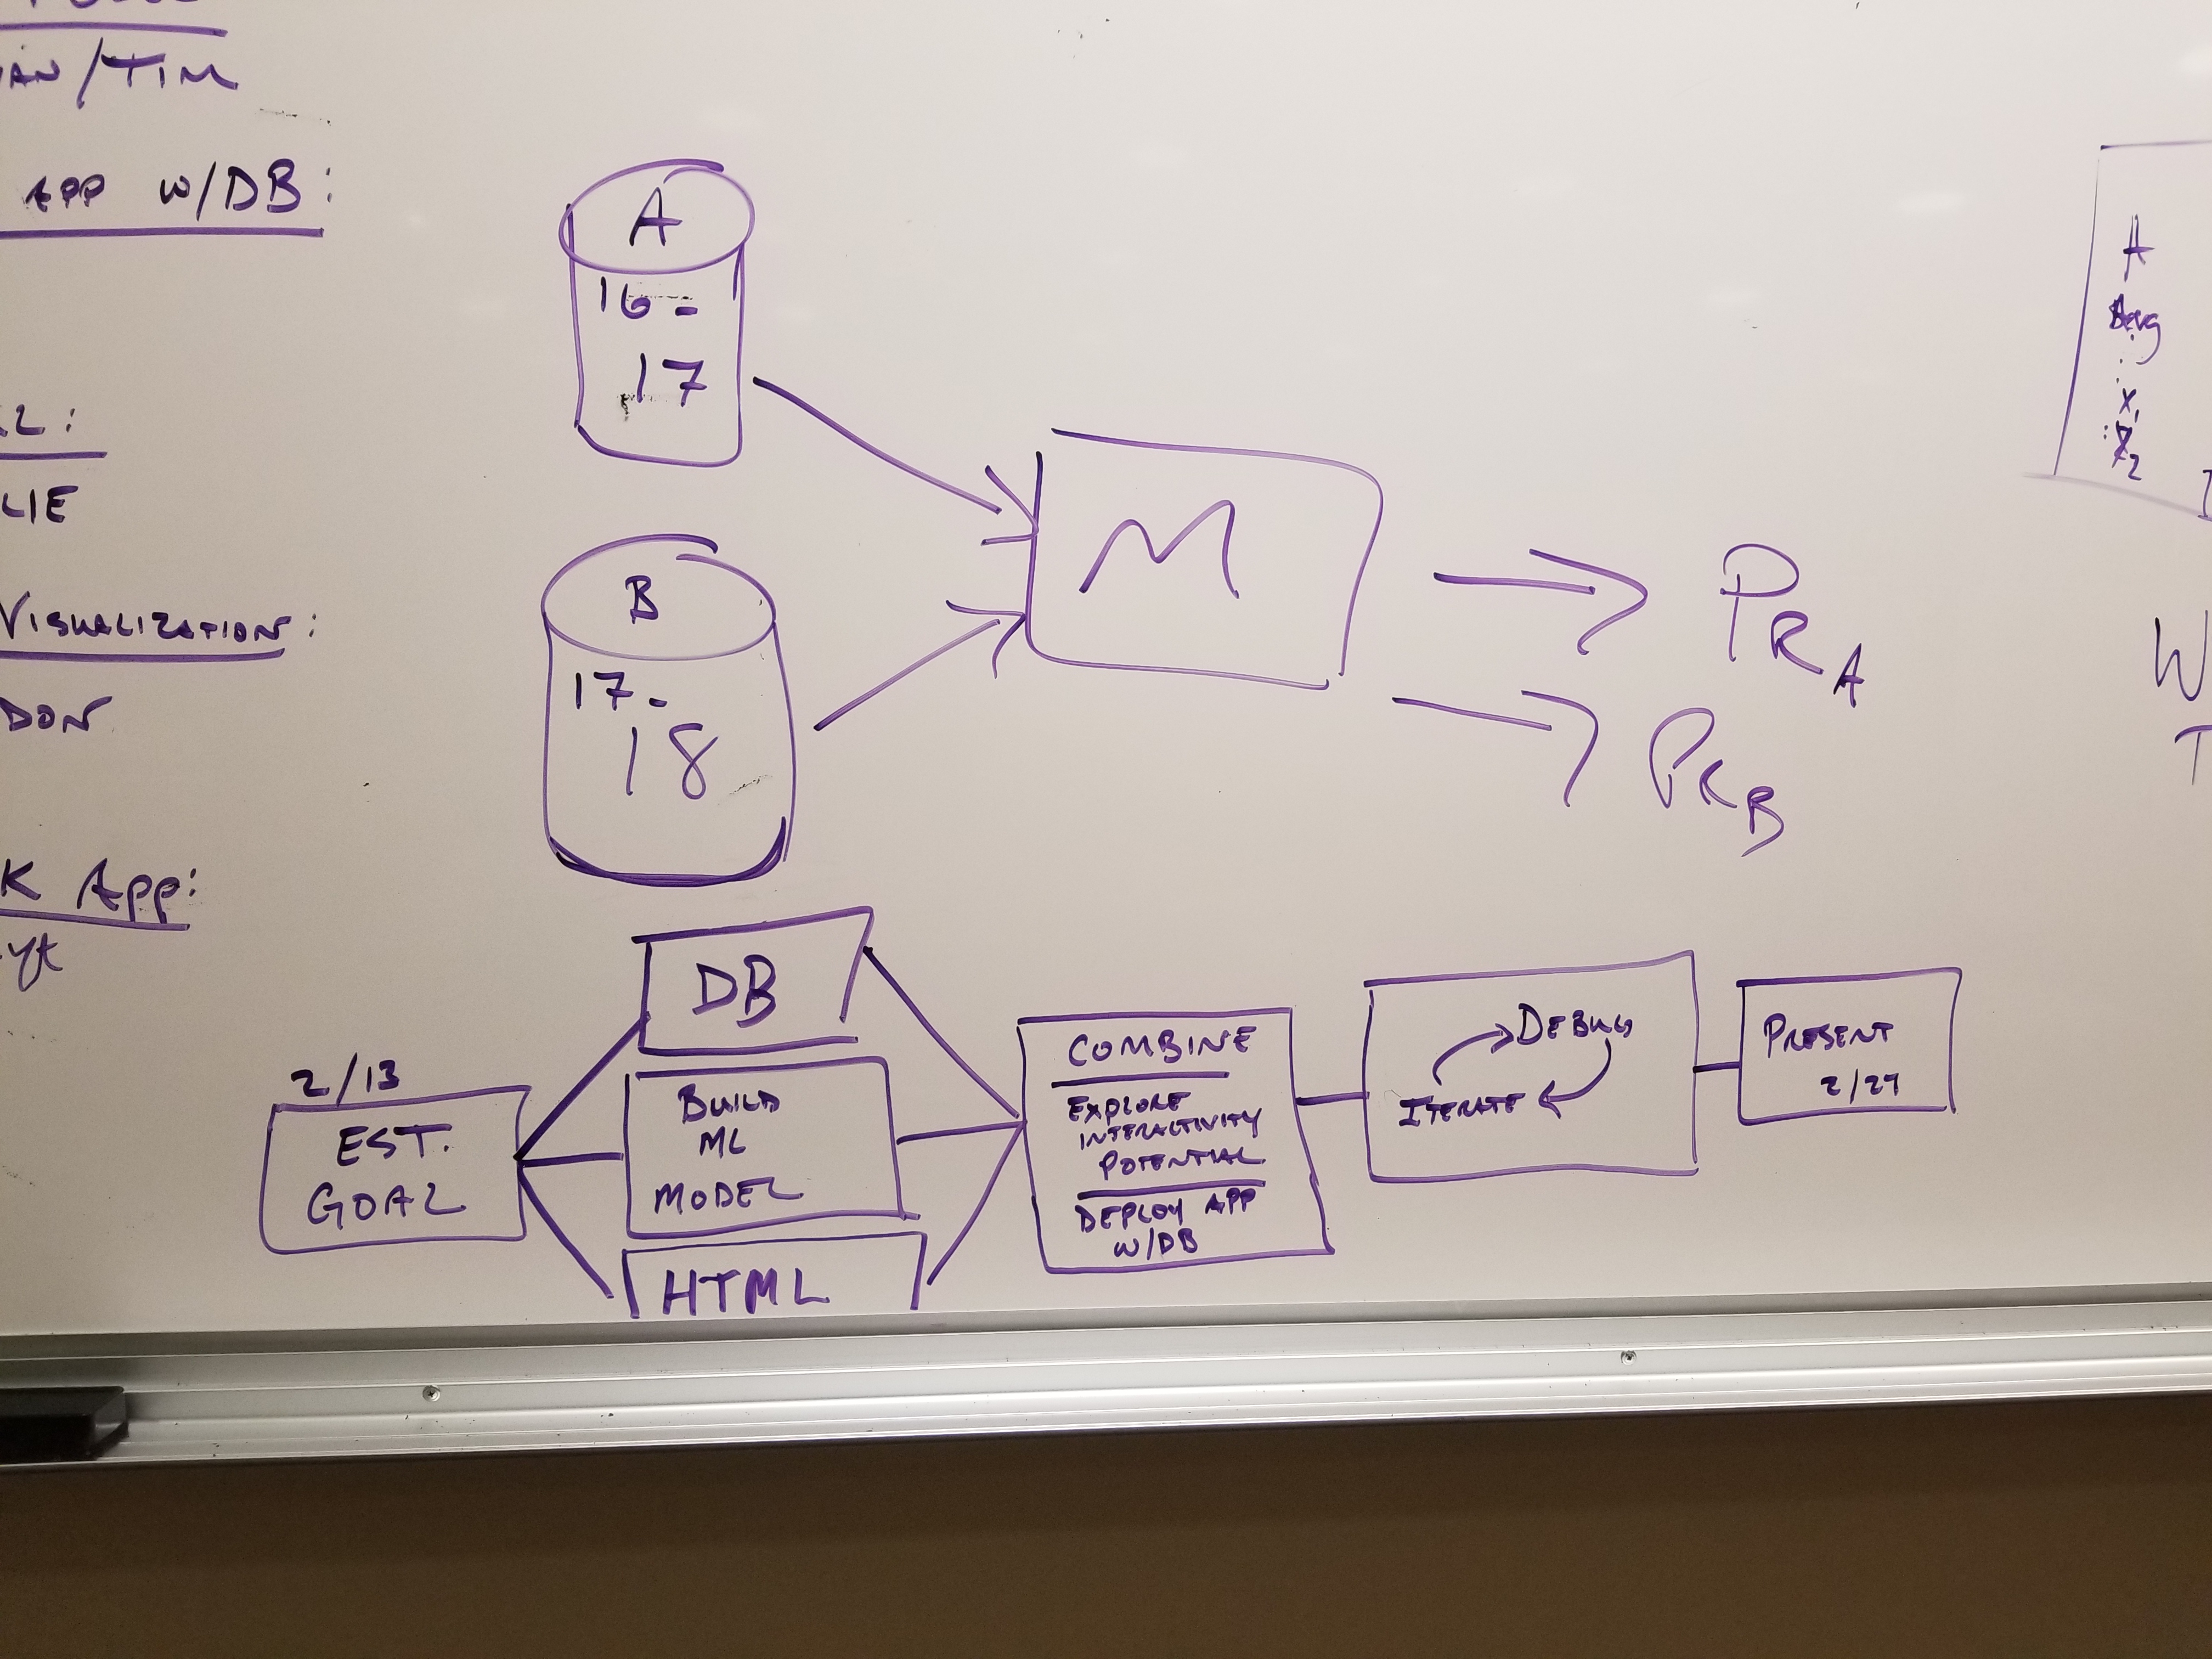 AN/TIM
APP W/DB:
LIE
VISUALIZATION:
DON
K APP:
A
16-
17
B
17-
18
M
PR A
PR B
A
X1
X2
W
T
DB
2/13
EST.
GOAL
BUILD
ML
MODEL
HTML
COMBINE
EXPLORE
INTERACTIVITY
POTENTIAL
DEPLOY APP
W/DB
DEBUG
ITERATE
PRESENT